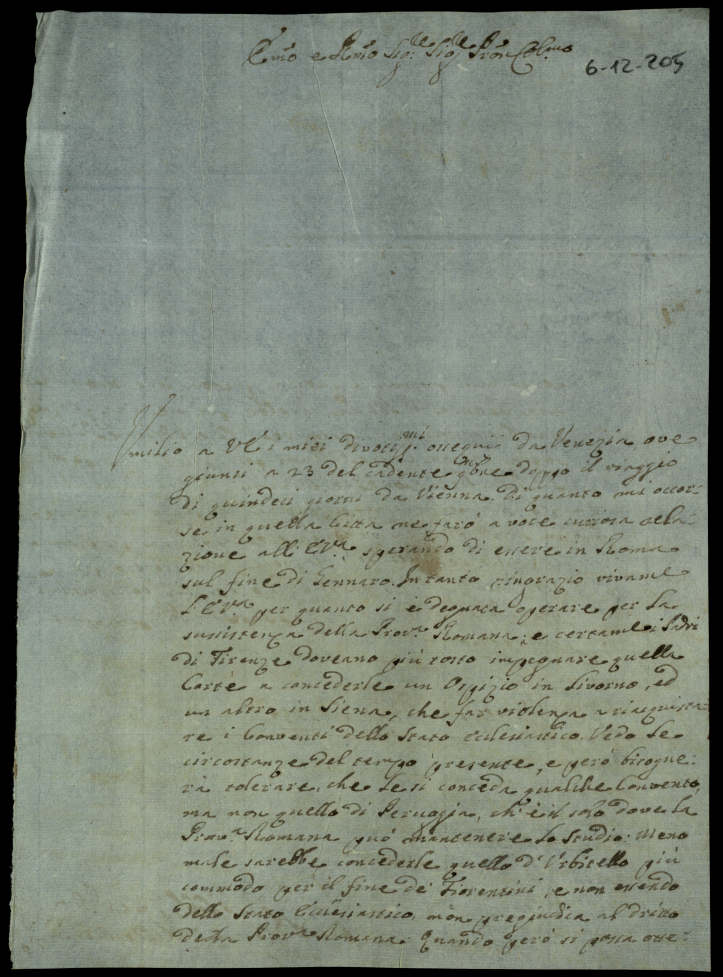 Emo e Rmo Sigre Sigre Pron Colmo
6-12-205
Umilio a VE i miei divotismi ossequii da Venezia ove
giunsi a 23 del cadente 9bre doppo il viaggio
di quindeci giorni da Vienna. Di quanto mi occor-
se in quella Città me farò a voce intiera rela-
zione all' EVra sperando di essere in Roma
sul fine di Gennaro. In tanto ringrazio vivame
L'EVra per quanto si è degnata operare per la
sussistenza della Prova Romana; e certame i Padri
di Firenze doveano più tosto impegnare quella
Corte a concederle un Ospizio in Livorno, ed
un altro in Siena, che far violenza a riacquista-
re i Conventi dello Stato Ecclesiastico. Vedo le
circostanze del tempo presente, e però bisogne-
rà tolerare, che le si conceda qualche Convento,
ma non quello di Perugia, ch' è il solo dove la
Prova Romana può mantenere lo studio. Meno
male sarebbe concederle quello d' Orbitello più
commodo per il fine de' Fiorentini, e non essendo
dello Stato Ecclesiastico, non pregiudica al dritto
della Prova Romana. Quando però si possa otte-